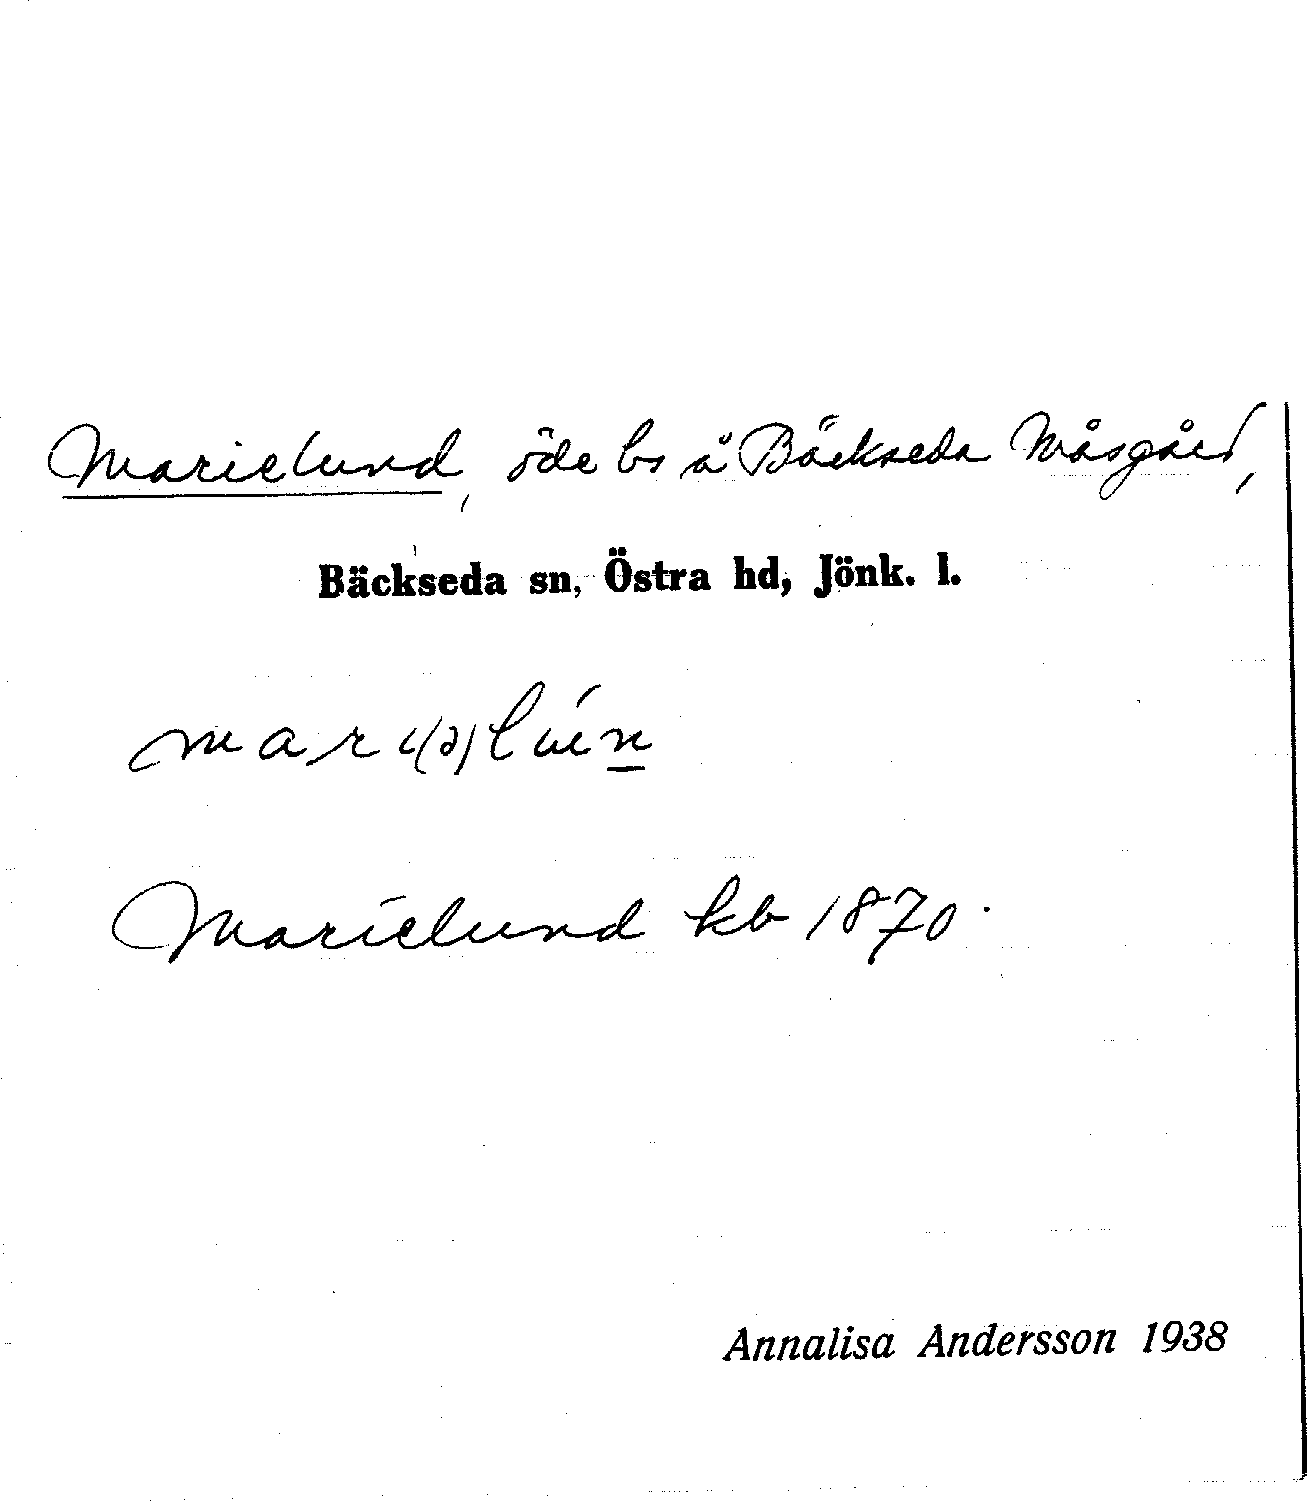 Marielund, öde bs å Bäckseda Måsgård,
Bäckseda sn, Östra hd, Jönk. l.
mari(ə)lún
Marielund kb 1870.
Annalisa Andersson 1938